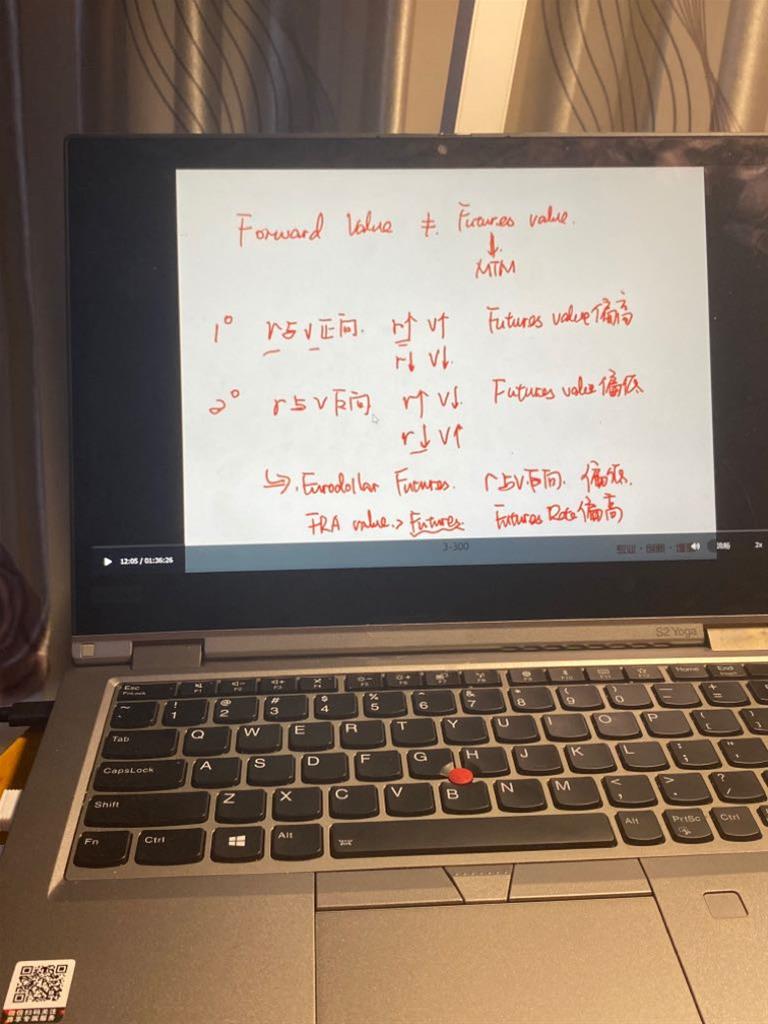 Forward Value ≠ Futures value.
↓
MTM
1° r与v正向. r↑ v↑ Futures value偏高
r↓ v↓.
2° r与v反向 r↑ v↓. Futures value偏低
r↓ v↑
↳. Eurodollar Futures. r与v反向. 偏低.
FRA value > Futures Futures Rate偏高
12:05 / 01:36:26
3-300
流畅
2x
S2 Yoga
Esc FnLock F1 F2 F3 F4 F5 F6 F7 F8 F9 F10 F11 F12 Home End
~ ! 1 @ 2 # 3 $ 4 % 5 ^ 6 & 7 * 8 ( 9 ) 0 _ - + =
Tab Q W E R T Y U I O P { [ } ]
CapsLock A S D F G H J K L : ; " '
Shift Z X C V B N M < , > . ? /
Fn Ctrl Alt Alt PrtSc Ctrl
微信扫码关注
共享专属服务